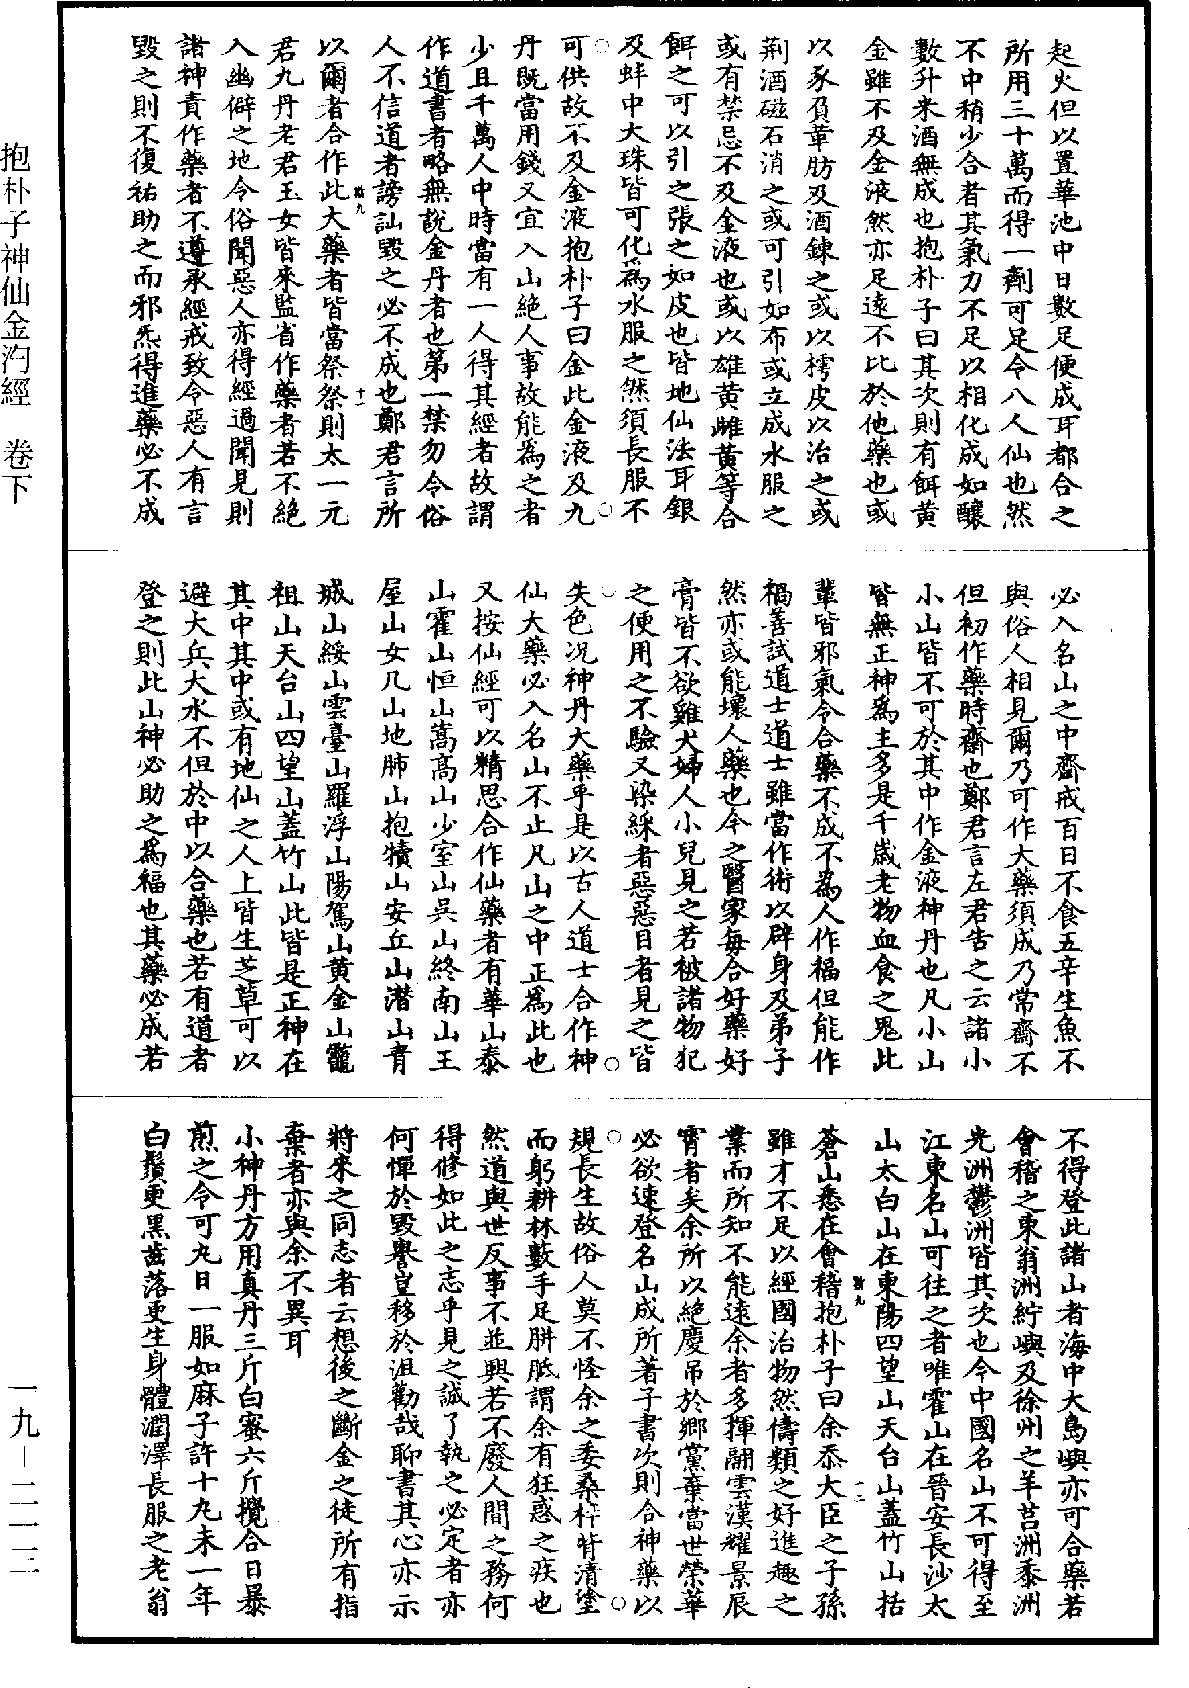 起火但以置華池中日數足便成耳都合之
所用三十萬而得一劑可足令八人仙也然
不中稍少合者其氣力不足以相化成如釀
數升米酒無成也抱朴子曰其次則有餌黃
金雖不及金液然亦足遠不比於他藥也或
以豕負革肪及酒鍊之或以樗皮以治之或
荊酒磁石消之或可引如布或立成水服之
或有禁忌不及金液也或以雄黃雌黃等合
餌之可以引之張之如皮也皆地仙法耳銀
及蚌中大珠皆可化為水服之然須長服不
可供故不及金液抱朴子曰金此金液及九
丹既當用錢又宜入山絶人事故能為之者
少且千萬人中時當有一人得其經者故謂
作道書者略無說金丹者也第一禁勿令俗
人不信道者謗訕毀之必不成也鄭君言所
以爾者合作此大藥者皆當祭祭則太一元
君九丹老君玉女皆來監省作藥者若不絶
入幽僻之地令俗聞惡人亦得經過聞見則
諸神責作藥者不遵承經戒致令惡人有言
毀之則不復祐助之而邪炁得進藥必不成
必入名山之中齋戒百日不食五辛生魚不
與俗人相見爾乃可作大藥須成乃常齋不
但初作藥時齋也鄭君言左君告之云諸小
小山皆不可於其中作金液神丹也凡小山
皆無正神為主多是千歲老物血食之鬼此
輩皆邪氣令合藥不成不為人作福但能作
禍善試道士道士雖當作術以辟身及弟子
然亦或能壞人藥也今之醫家每合好藥好
膏皆不欲雞犬婦人小兒見之若被諸物犯
之便用之不驗又染綵者惡惡目者見之皆
失色况神丹大藥乎是以古人道士合作神
仙大藥必入名山不止凡山之中正為此也
又按仙經可以精思合作仙藥者有華山泰
山霍山恒山嵩高山少室山吳山終南山王
屋山女几山地肺山抱犢山安丘山潛山青
城山綏山雲臺山羅浮山陽駕山黃金山鼈
祖山天台山四望山蓋竹山此皆是正神在
其中其中或有地仙之人上皆生芝草可以
避大兵大水不但於中以合藥也若有道者
登之則此山神必助之為福也其藥必成若
不得登此諸山者海中大島嶼亦可合藥若
會稽之東翁洲紵嶼及徐州之羊莒洲黍洲
光洲鬱洲皆其次也今中國名山不可得至
江東名山可往之者唯霍山在晉安長沙太
山太白山在東陽四望山天台山蓋竹山括
蒼山悉在會稽抱朴子曰余忝大臣之子孫
雖才不足以經國治物然儔類之好進趣之
業而所知不能遠余者多揮翮雲漢耀景辰
霄者矣余所以絶慶吊於鄉黨棄當世榮華
必欲速登名山成所著子書次則合神藥以
規長生故俗人莫不怪余之委桑梓背清塗
而躬耕林藪手足胼胝謂余有狂惑之疾也
然道與世反事不並興若不廢人間之務何
得修如此之志乎見之誠了執之必定者亦
何憚於毀譽豈移於沮勸哉聊書其心亦示
將來之同志者云想後之斷金之徒所有指
棄者亦與余不異耳
小神丹方用真丹三斤白蜜六斤攪合日暴
煎之令可丸日一服如麻子許十丸未一年
白鬚更黑齒落更生身體潤澤長服之老翁
斯九
十一
斯九
十二
抱朴子神仙金汋經　卷下
一九—二一二